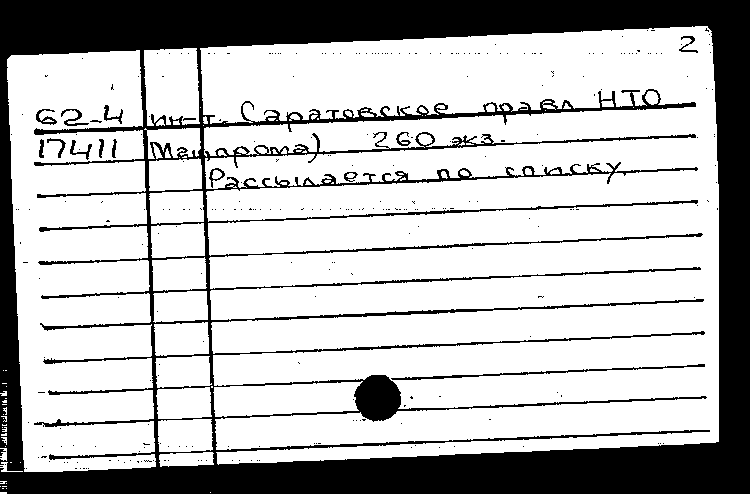 2
62-4 ин-т. Саратовское правл НТО
17411 Машпрома) 260 экз.
Рассылается по списку.